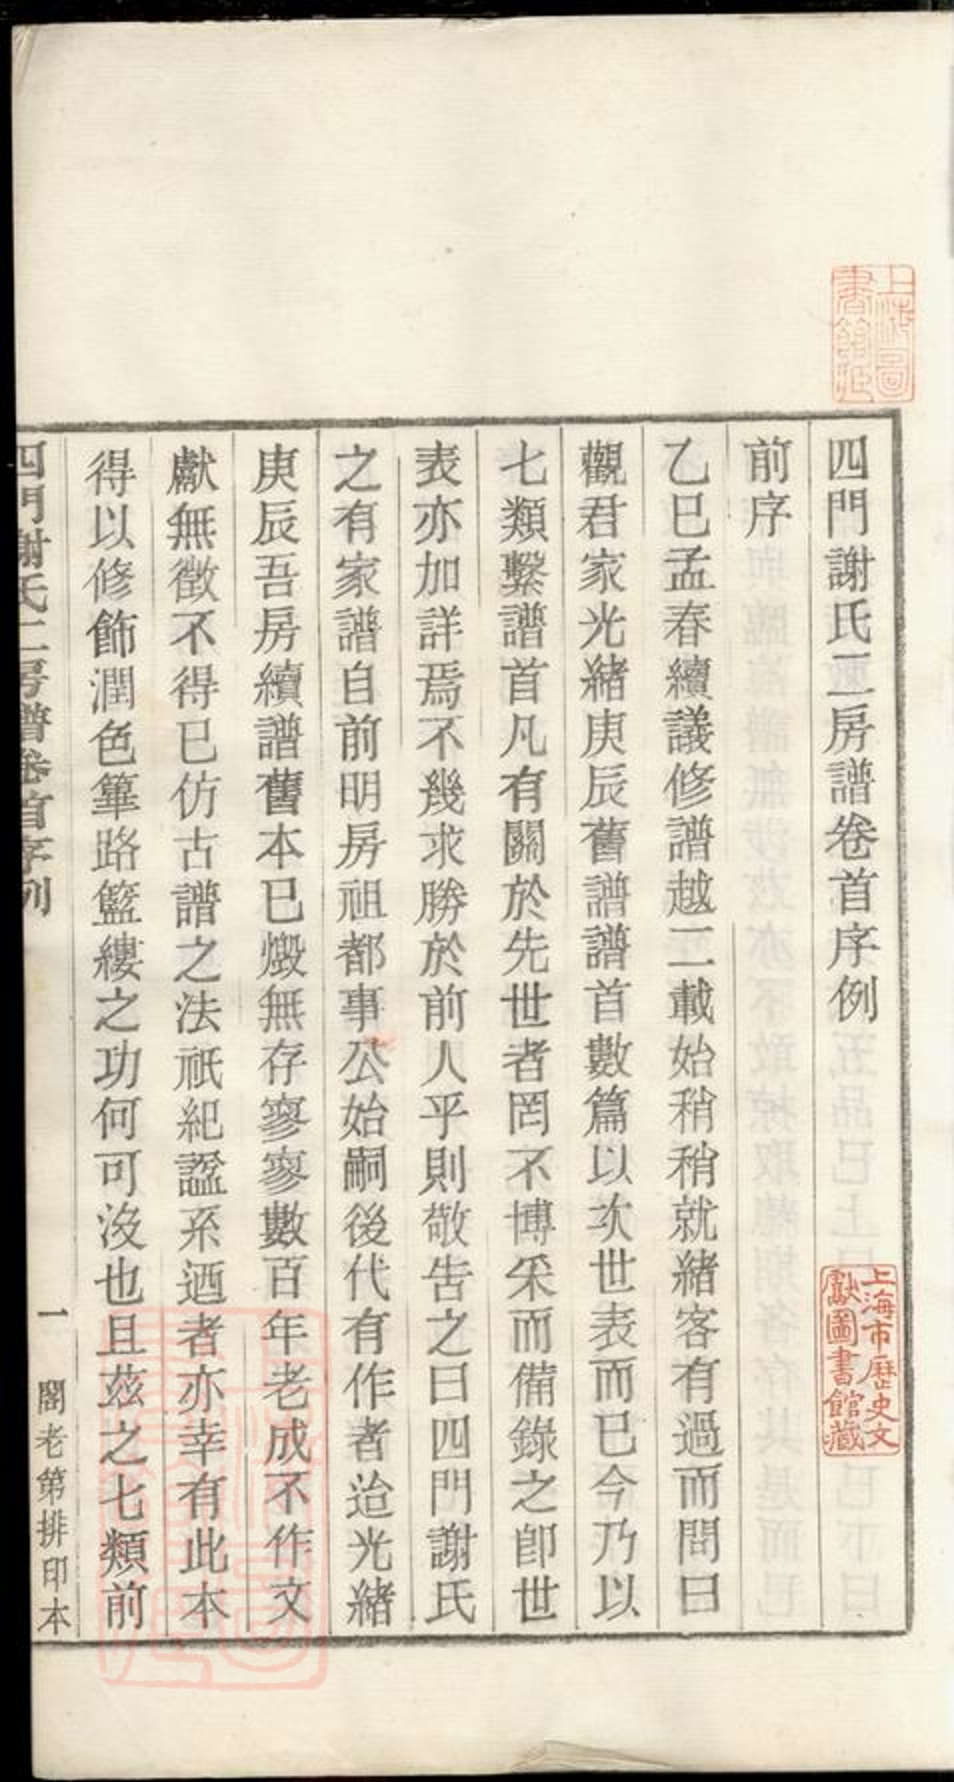 四門謝氏二房譜卷首序例
前序
乙巳孟春續議修譜越二載始稍稍就緒客有過而問曰
觀君家光緒庚辰舊譜譜首數篇以次世表而已今乃以
七類繫譜首凡有關於先世者罔不博采而備錄之卽世
表亦加詳焉不幾求勝於前人乎則敬告之曰四門謝氏
之有家譜自前明房祖都事公始嗣後代有作者迨光緒
庚辰吾房續譜舊本已燬無存寥寥數百年老成不作文
獻無徵不得已仿古譜之法祇紀諡系迺者亦幸有此本
得以修飾潤色篳路籃縷之功何可沒也且茲之七類前
四門謝氏二房譜卷首序例
一
閣老第排印本
上海圖書館藏
上海市歷史文獻圖書館藏